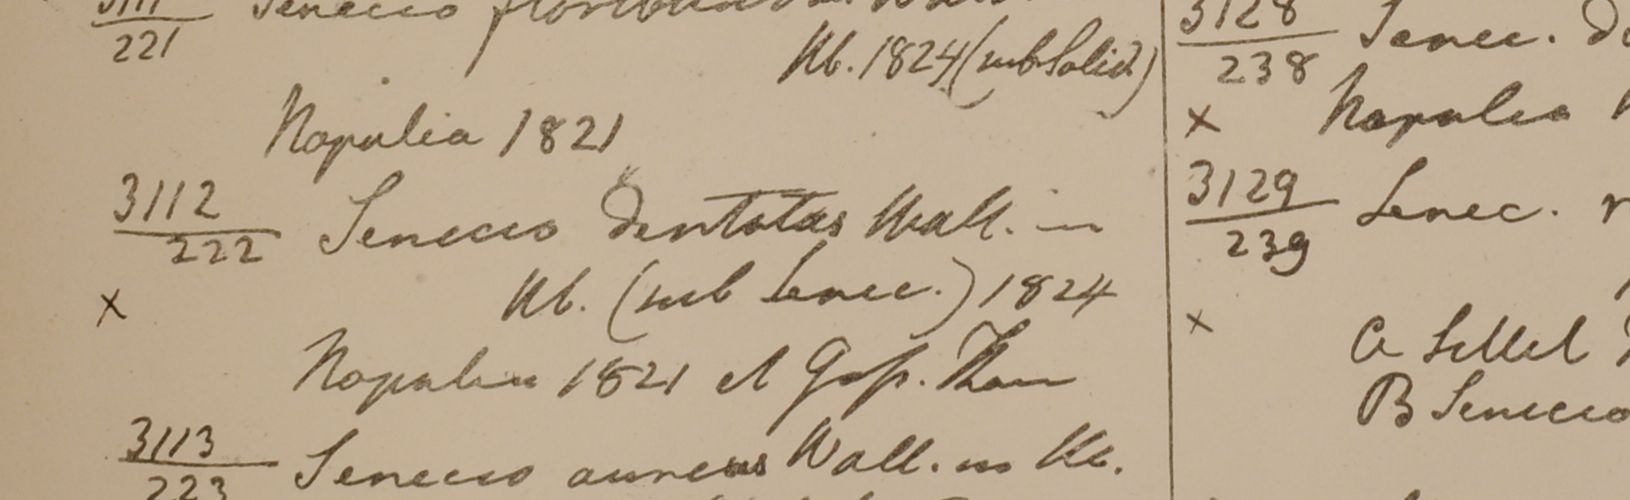 3111
221
Senecio
Hb. 1824 (sub Solid)
Napalia 1821
3112
222
Senecio dentatus Wall. in
Hb. (sub Senec.) 1824
Napalia 1821 et Gos. Than
3113
223
Senecio aureus Wall. in Hb.
3128
238
Senec.
Napalia
3129
239
Senec.
B Senecio